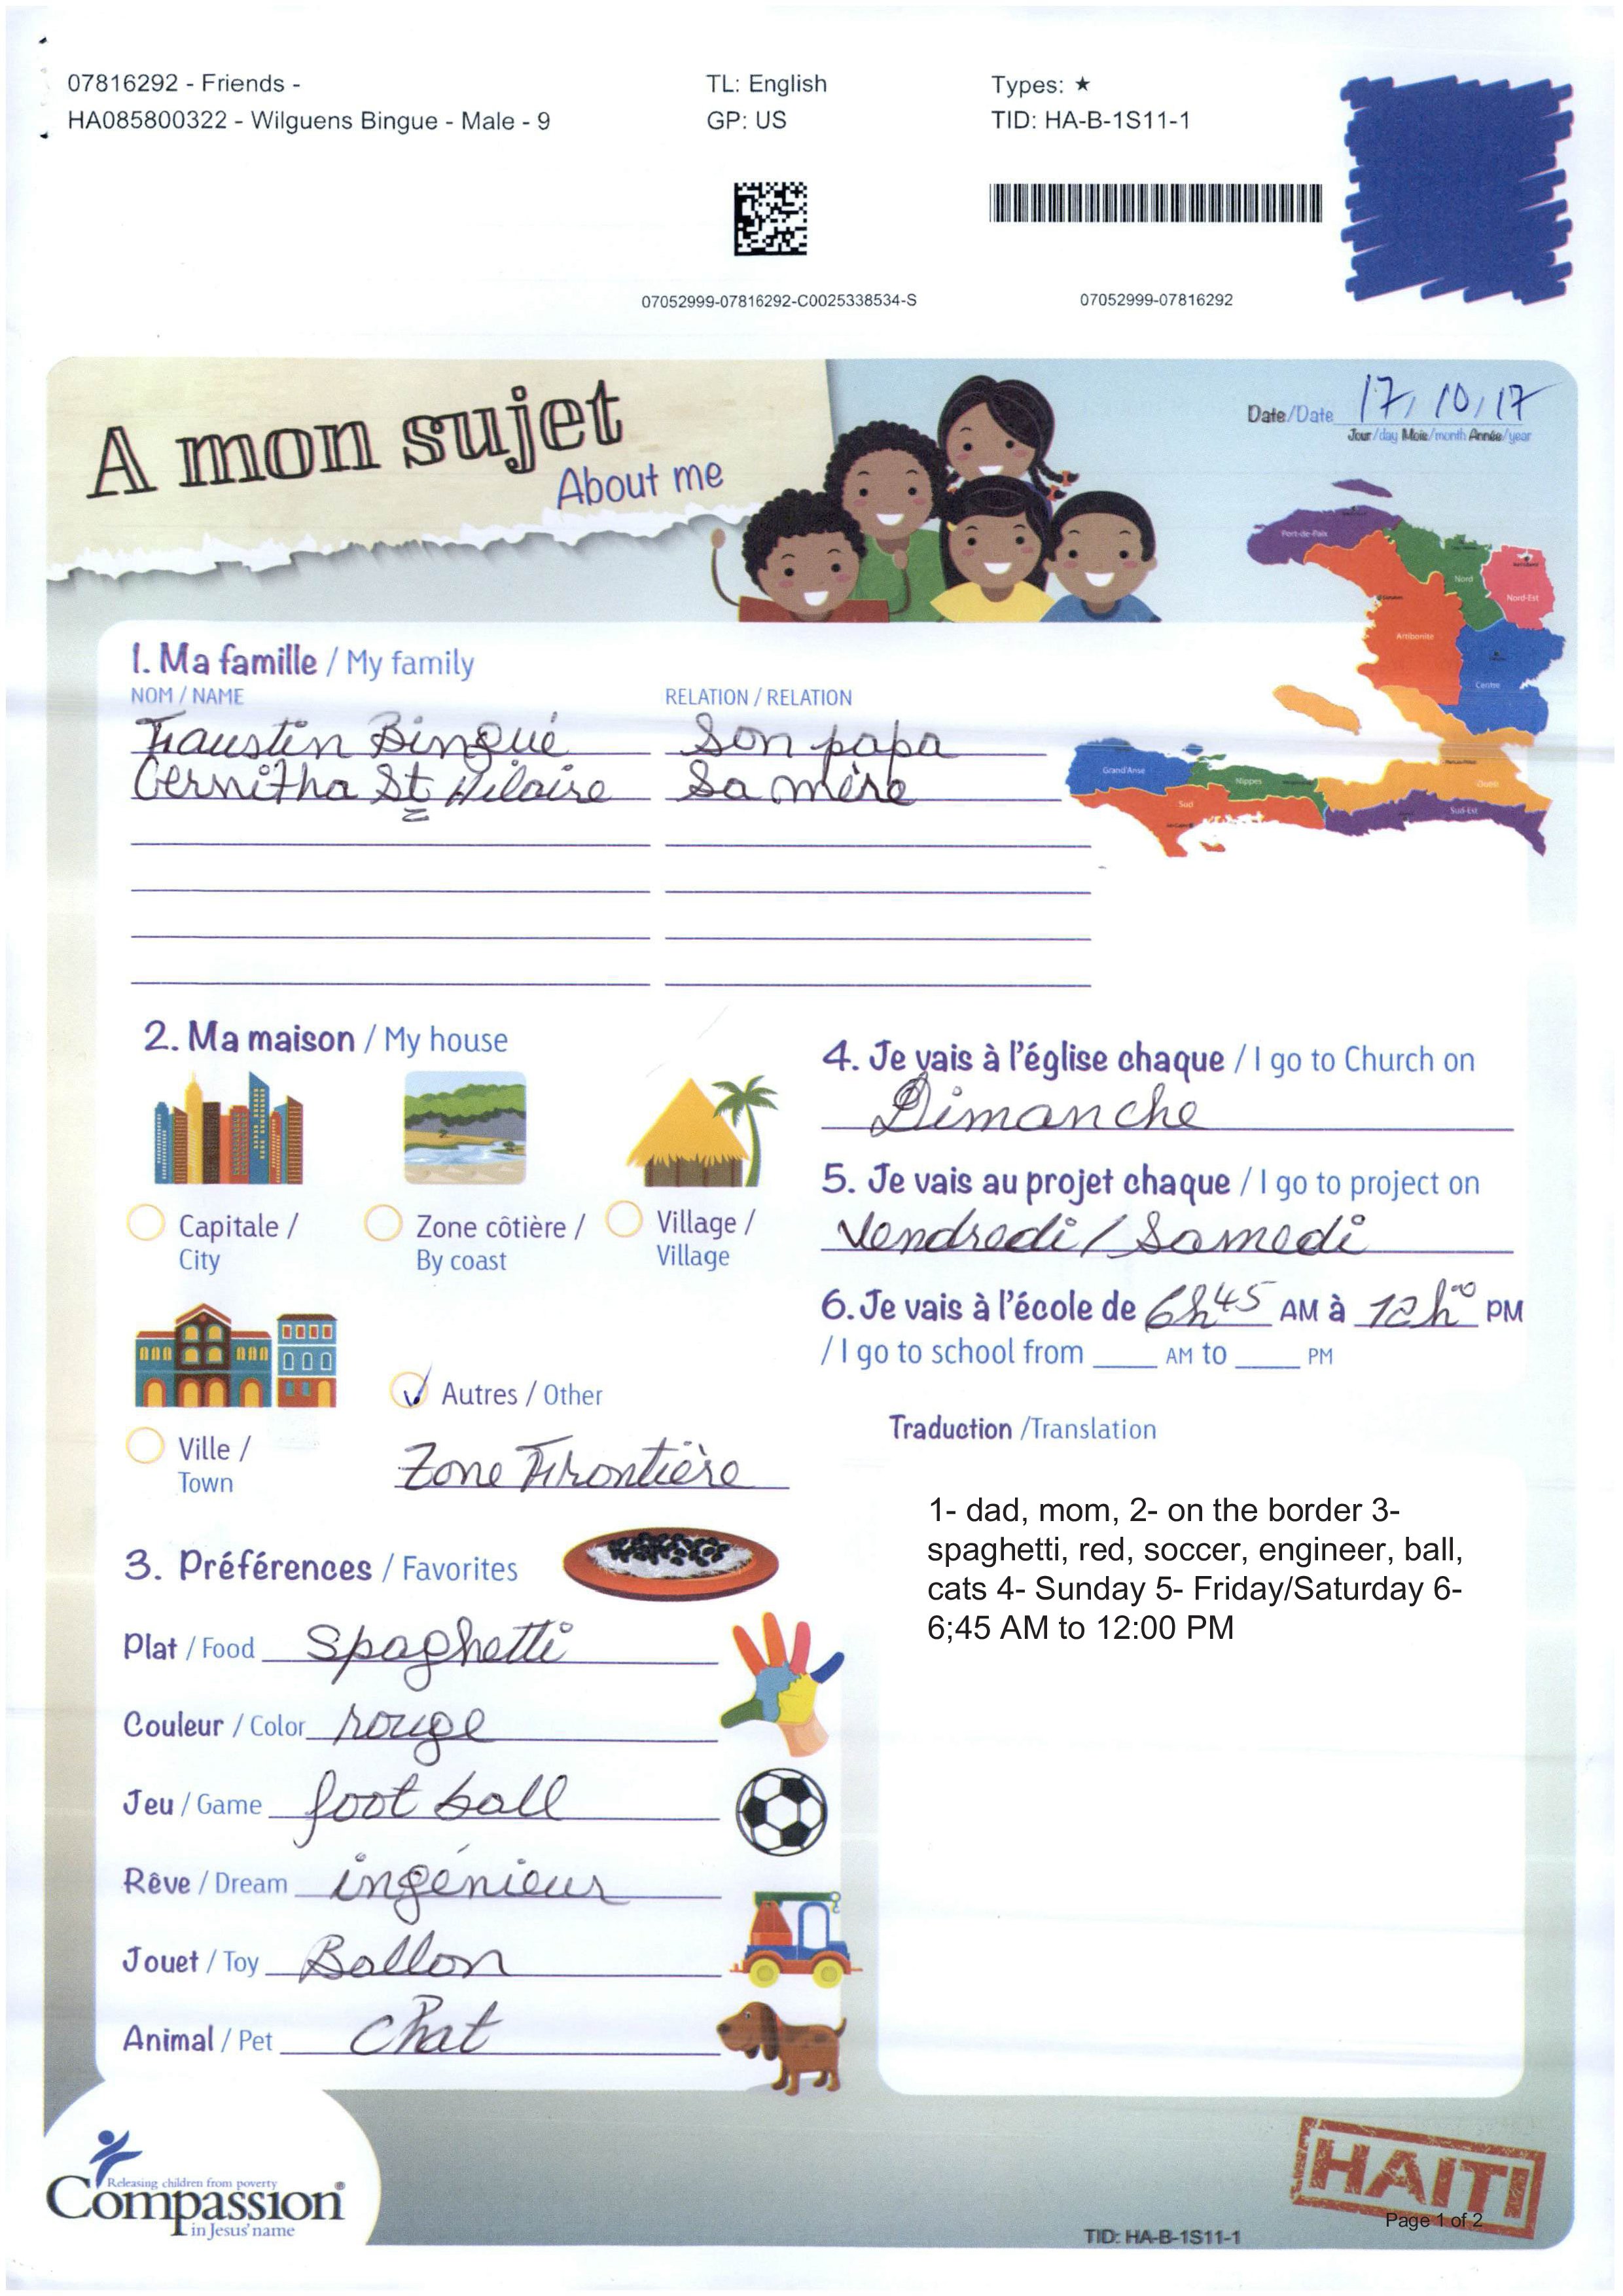 07816292 - Friends -
HA085800322 - Wilguens Bingue - Male - 9
TL: English
GP: US
Types: ★
TID: HA-B-1S11-1
07052999-07816292-C0025338534-S
07052999-07816292
A mon sujet
About me
Date/Date 17/10/17
Jour/day Mois/month Année/year
Port-de-Paix
Nord
Nord-Est
Artibonite
Centre
Grand'Anse
Nippes
Ouest
Sud
Sud-Est
1. Ma famille / My family
NOM / NAME RELATION / RELATION
Faustin Bingué Son papa
Cernitha St Hilaire Sa mère
2. Ma maison / My house
Capitale /
City
Zone côtière /
By coast
Village /
Village
Ville /
Town
Autres / Other
Zone Frontière
3. Préférences / Favorites
Plat / Food Spaghetti
Couleur / Color rouge
Jeu / Game foot ball
Rêve / Dream ingénieur
Jouet / Toy Ballon
Animal / Pet Chat
4. Je vais à l'église chaque / I go to Church on
Dimanche
5. Je vais au projet chaque / I go to project on
Vendredi / Samedi
6. Je vais à l'école de 6h45 AM à 12h00 PM
/ I go to school from ____ AM to ____ PM
Traduction /Translation
1- dad, mom, 2- on the border 3-
spaghetti, red, soccer, engineer, ball,
cats 4- Sunday 5- Friday/Saturday 6-
6;45 AM to 12:00 PM
Releasing children from poverty
Compassion®
in Jesus' name
HAITI
Page 1 of 2
TID: HA-B-1S11-1